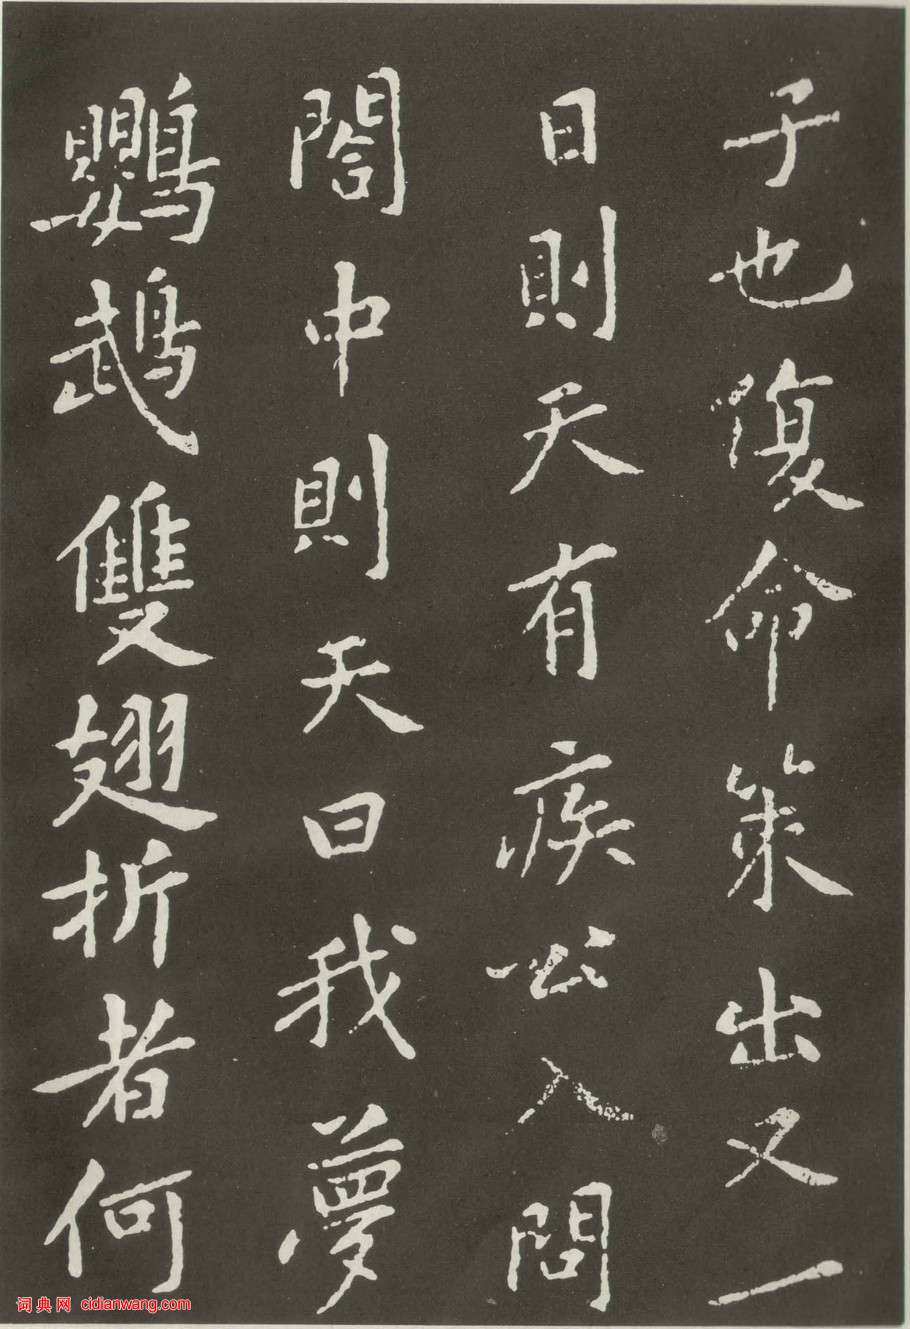 子也復命策出又一
日則天有疾公入問
閤中則天曰我夢
鸚鵡雙翅折者何
词典网 cidianwang.com